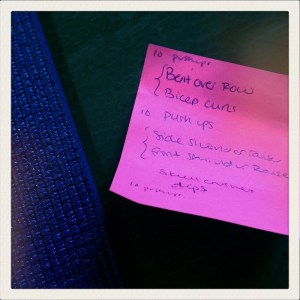 10 pushups
Bent over Row
Bicep curl
10 push ups
Side shoulder raise
front shoulder
dips
10 pushups